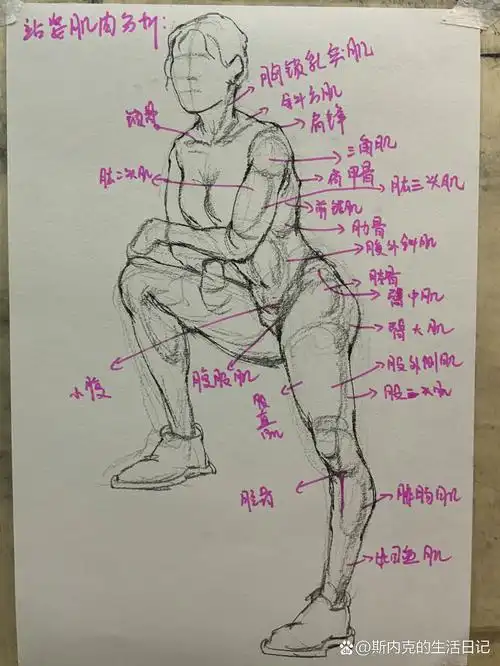 站姿肌肉分析:
胸锁乳突肌
斜方肌
肩峰
锁骨
三角肌
肱二头肌
肩甲骨
肱三头肌
前锯肌
肋骨
腹外斜肌
髂骨
臀中肌
臀大肌
股外侧肌
小腹
腹股肌
股直肌
股二头肌
胫骨
腓肠肌
比目鱼肌
斯内克的生活日记